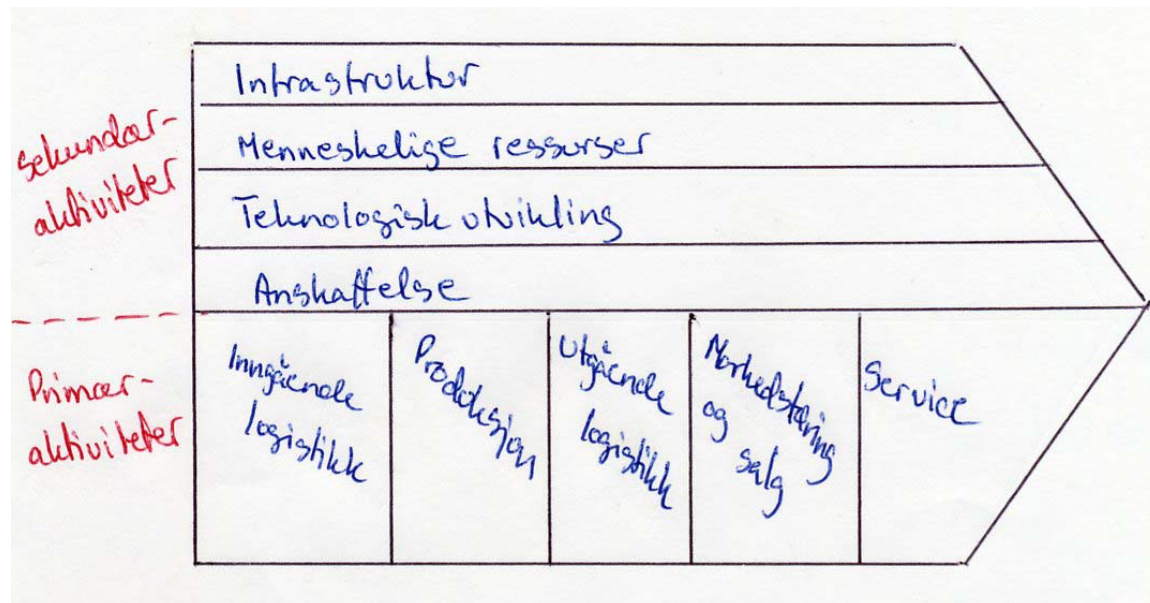 Sekundær-
aktiviteter
Infrastruktur
Menneskelige ressurser
Teknologisk utvikling
Anskaffelse
Primær-
aktiviteter
Inngående
logistikk
Produksjon
Utgående
logistikk
Markedsføring
og
salg
Service